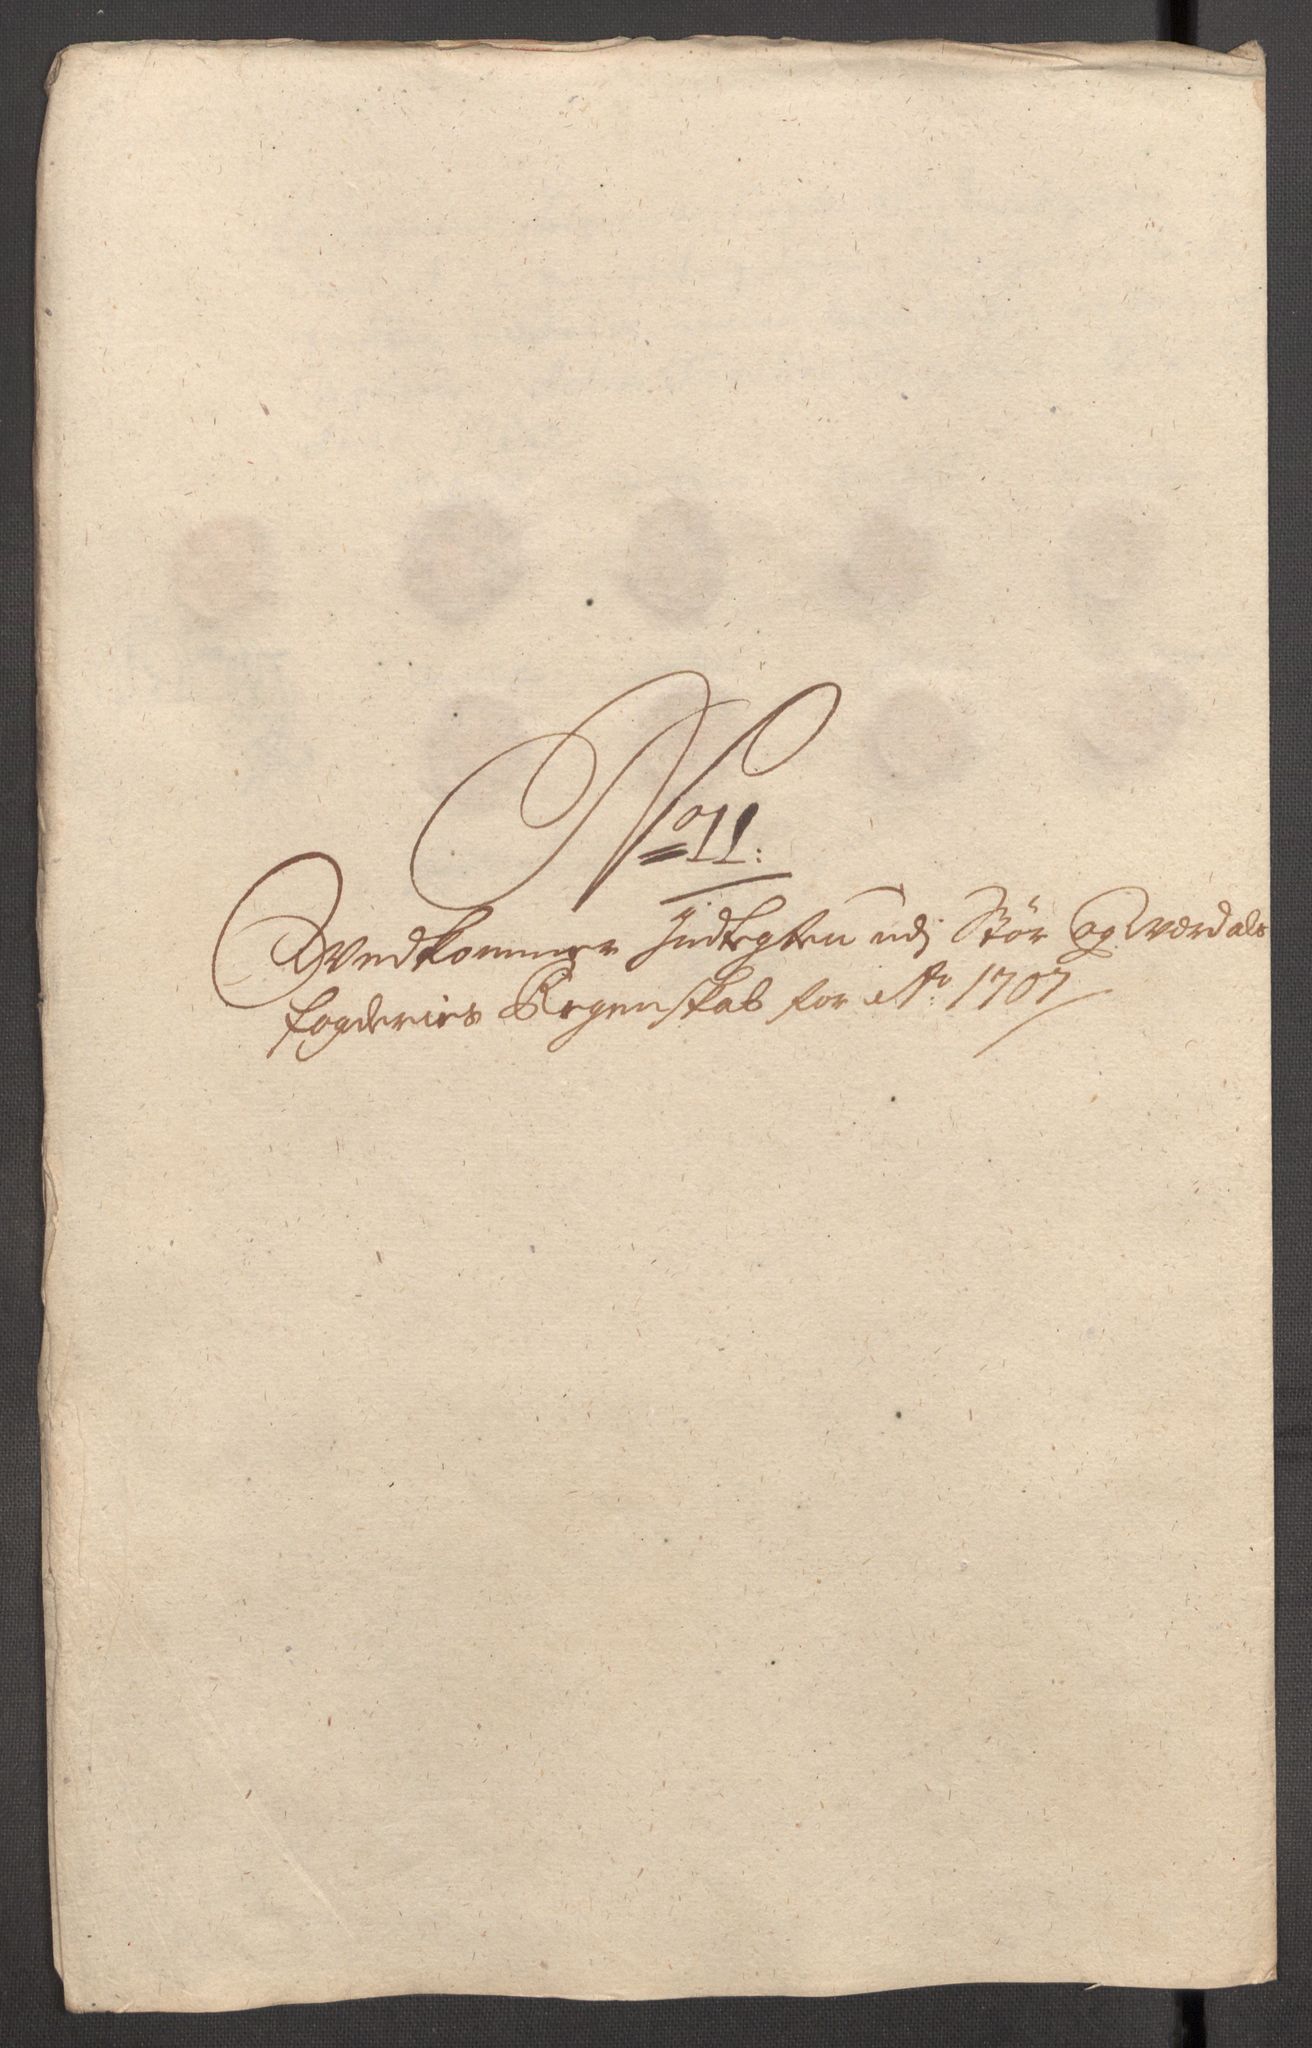 No 11:
Vedkommer Indtegten udj Stör og Værdals
fogderies Regenskab for Ao: 1707